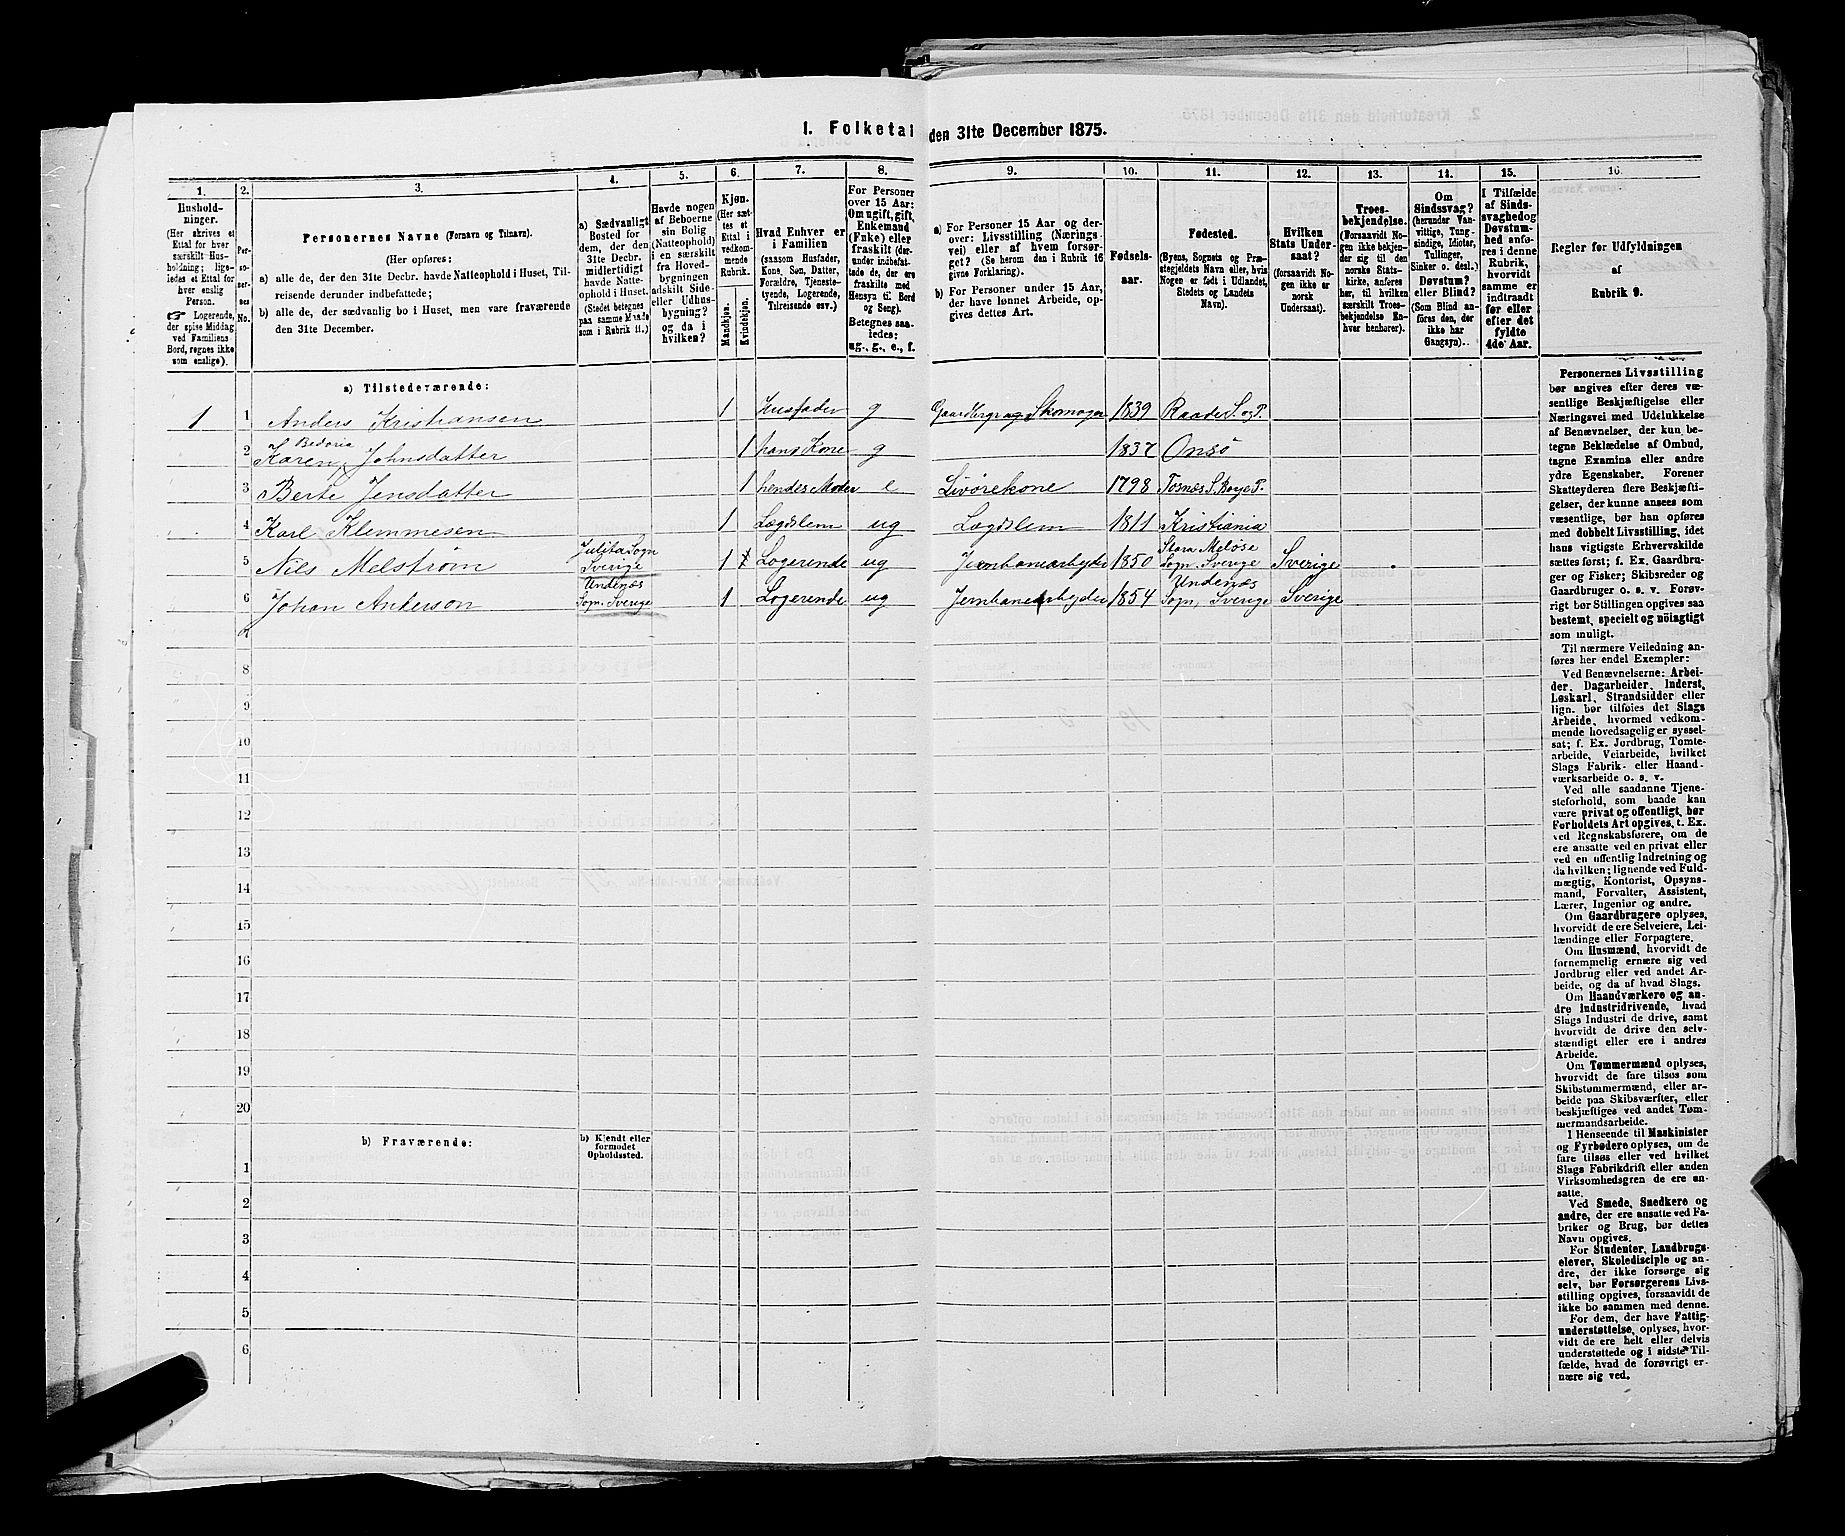 1. Folketal den 31te December 1875.
1.
2.
3.
4.
5.
6.
7.
8.
9.
10.
11.
12.
13.
14.
15.
16.
Husholdninger.
(Her skrives et
Ettal for hver
særskilt Husholdning;
ligeledes et Ettal for
hver enslig
Person.
Logerende,
der spise Middag
ved Familiens
Bord, regnes ikke
som enslige).
Personernes No.
Personernes Navne (Fornavn og Tilnavn).
(Her opføres:
a) alle de, der den 31te Decbr. havde Natteophold i Huset, Tilreisende derunder indbefattede;
b) alle de, der sædvanlig bo i Huset, men vare fraværende
den 31te December.
a) Sædvanligt
Bosted for
dem, der den
31te Decbr.
midlertidigt
havde Natteophold i Huset.
(Stedet betegnes
paa samme Maade
som i Rubrik 11.)
Havde nogen
af Beboerne
sin Bolig
(Natteophold)
i en særskilt
fra Hovedbygningen
adskilt Side-
eller Udhusbygning?
og da i
hvilken?
Kjøn.
(Her sættes et
Ettal i
vedkommende
Rubrik.
Mandkjøn.
Kvindekjøn.
Hvad Enhver er
i Familien
(saasom Husfader,
Kone, Søn, Datter,
Forældre, Tjenestetyende, Logerende,
Tilreisende osv.)
For Personer
over 15 Aar:
Om ugift, gift,
Enkemand
(Enke) eller
fraskilt (derunder indbefattede de, der ere
fraskilte med
Hensyn til Bord
og Seng).
Betegnes saaledes:
ug., g., e., f.
a) For Personer 15 Aar og derover: Livsstilling (Næringsvei) eller af hvem forsørget? (Se herom den i Rubrik 16
givne Forklaring).
b) For Personer under 15 Aar,
der have lønnet Arbeide, opgives dettes Art.
Fødselsaar.
Fødested.
(Byens, Sognets og Præstegjeldets Navn eller, hvis
Nogen er født i Udlandet,
Stedets og Landets
Navn).
Hvilken
Stats Undersaat?
(forsaavidt Nogen ikke er
norsk
Undersaat).
Troesbekjendelse.
(Forsaavidt Nogen ikke bekjender sig til den
norske Statskirke, anføres
her, til hvilken
særskilt Troesbekjendelse Enhver henhører).
Om
Sindssvag?
(herunder Vanvittige, Tungsindige, Idioter,
Tullinger,
Sinker o. desl.)
Døvstum?
eller Blind?
(Som Blind anføres den, der
ikke har
Gangsyn).
I Tilfælde
af Sindssvaghed og
Døvstumhed anføres i denne
Rubrik,
hvorvidt
samme er
indtraadt
før eller
efter det
fyldte
4de Aar.
Regler for Udfyldningen
af
Rubrik 9.
a) Tilstedeværende:
1 1 Anders Kristiansen 1 Husfader g Gaardbrger og Skomager 1839 Raade S. og P.
Bedoria
2 Karen Johnsdatter 1 hans Kone g 1832 Onsö
3 Berte Jensdatter 1 hendes Moder e Livörekone 1798 Tosnæs S. Borge P.
4 Karl Klemmesen 1 Lægdslem ug Lægdslem 1811 Kristiania
5 Nils Melström Julita Sogn Sverige 1 Logerende ug Jernbanearbyder 1850 Stora Melöse Sogn, Sverige Sverige
6 Johan Anderson Undenæs Sogn, Sverige 1 Logerende ug Jernbanearbyder 1854 Undenæs Sogn, Sverige Sverige
7
8
9
10
11
12
13
14
15
16
17
18
19
20
b) Fraværende:
b) Kjendt eller
formodet
Opholdssted.
1
2
3
4
5
6
Personernes Livsstilling
bør angives efter deres væsentlige Beskjæftigelse eller
Næringsvei med Udelukkelse
af Benævnelser, der kun betegne Beklædelse af Ombud,
tagne Examina eller andre
ydre Egenskaber. Forener
Skatteyderen flere Beskjæftigelser, der kunne ansees som
væsentlige, bør han opføres
med dobbelt Livsstilling, idet
hans vigtigste Erhvervskilde
sættes først; f. Ex. Gaardbruger og Fisker; Skibsreder og
Gaardbruger o. s. v. Forøvrigt bør Stillingen opgives saa
bestemt, specielt og nöiagtigt
som muligt.
Til nærmere Veiledning anføres her endel Exempler:
Ved Benævnelserne: Arbeider, Dagarbeider, Inderst,
Løskarl, Strandsidder eller
lign. bør tilføies det Slags
Arbeide, hvormed vedkommende hovedsagelig er sysselsat; f. Ex. Jordbrug, Tomtearbeide, Veiarbeide, hvilket
Slags Fabrik- eller Haandværksarbeide o. s. v.
Ved alle saadanne Tjenesteforhold, som baade kan
være privat og offentligt, bør
Forholdets Art opgives, t. Ex.
ved Regnskabsførere, om de
ere ansatte ved en privat eller
ved en offentlig Indretning og
da hvilken; lignende ved Fuldmægtig, Kontorist, Opsynsmand, Forvalter, Assistent,
Lærer, Ingeniør og andre.
Om Gaardbrugere oplyses,
hvorvidt de ere Selveiere, Leilændinge eller Forpagtere.
Om Husmænd, hvorvidt de
fornemmelig ernære sig ved
Jordbrug eller ved andet Arbeide, og da af hvad Slags.
Om Haandværkere og andre Industridrivende, hvad
Slags Industri de drive, samt
hvorvidt de drive den selvstændigt eller ere i andres
Arbeide.
Om Tømmermænd oplyses,
hvorvidt de fare tilsøs som
Skibstømmermænd, eller arbeide paa Skibsværfter, eller
beskjæftiges ved andet Tømmermandsarbeide.
I Henseende til Maskinister
og Fyrbødere oplyses, om de
fare tilsøs eller ved hvilket
Slags Fabrikdrift eller anden
Virksomhedsgren de ere ansatte.
Ved Smede, Snedkere og
andre, der ere ansatte ved Fabriker og Brug, bør dettes
Navn opgives.
For Studenter, Landbrugselever, Skoledisciple og andre, der ikke forsørge sig
selv, bør Forsørgerens Livsstilling opgives, forsaavidt de
ikke bo sammen med denne.
For dem, der have Fattigunderstøttelse, oplyses, hvorvidt de ere helt eller delvis
understøttede og i sidste Tilfælde, hvad de forøvrigt ernære sig ved.